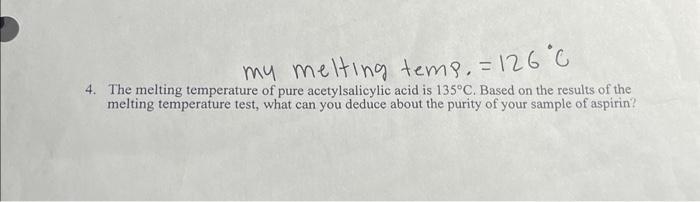 my melting temp. = 126°C
4. The melting temperature of pure acetylsalicylic acid is 135°C. Based on the results of the
melting temperature test, what can you deduce about the purity of your sample of aspirin?